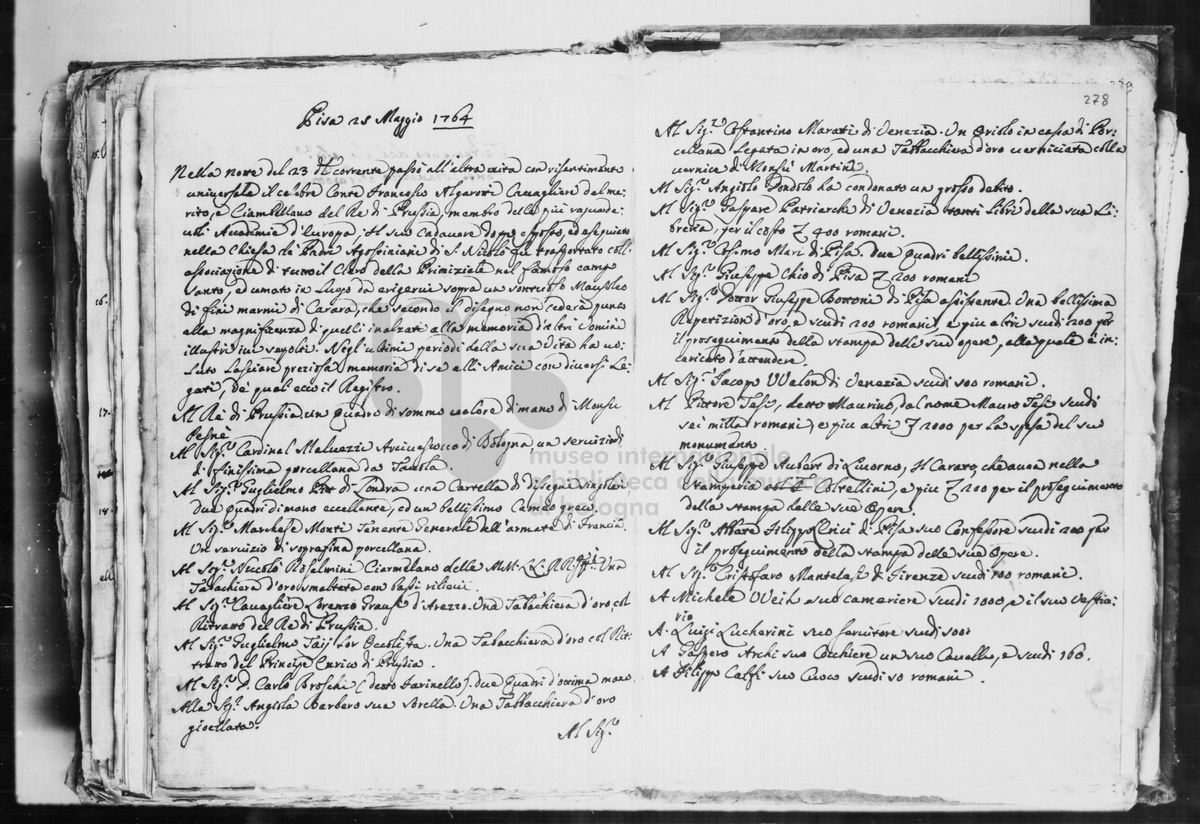 Pisa 28 Maggio 1764
Nella notte del 23 del corrente passò all'altra vita con risentimento
universale il celebre Conte Francesco Algarotti Cavagliere del me:
rito, e Ciambellano del Re di Prussia, membro delle più ragguarde:
voli Accademie d'Europa: Il suo Cadavere dopo esposto, ed eseguito
nella Chiesa de Padri Agostiniani di S. Nicolò fu trasportato coll'
associazione di tutto il Clero della Primiziale nel famoso campo
Santo, e umato in luogo da erigervi sopra un sontuoso Mausoleo
di fini marmi di Carara, che secondo il disegno non cederà punto
alla magnificenza di quelli inalzati alla memoria d'altri Uomini
illustri ivi sepolti. Negl'ultimi periodi della sua Vita ha vo:
luto lasciare preziosa memoria di se alli Amici con diversi Le:
gati, de' quali ecco il Registro.
Al Re di Prussia un quadro di sommo valore di mano di Monsu
Pesne
Al Sig.r Cardinal Malvezzi Arcivescovo di Bologna un servizio di
di finissima porcellana da Tavola.
Al Sig.r Guglielmo Pitt di Londra una Cartella di disegni singolari
due quadri di mano eccellente, ed un bellissimo Cameo greco.
Al Sig.r Marchese Monti Tenente Generale dell'armate di Francia
Un servizio di soprafina porcellana.
Al Sig.r Niccolò Roselmini Ciamelano delle MM. RR. Una
Tabachiera d'oro smaltata con bassi rilievi
Al Sig.r Cavagliere Lorenzo d'Arezzo. Una Tabachiera d'oro, col
Ritratto del Re di Prussia.
Al Sig.r Guglielmo Taijlor Occolista. Una Tabacchiera d'oro col Rit:
tratto del Principe Enrico di Prussia.
Al Sig.r D. Carlo Broschi (detto Farinello). due Quadri d'ottima mano
Alla Sig.ra Angiola Barbero sua Sorella. Una Tabbacchiera d'oro
gioellata.
Al Sig.r
278
Al Sig.r Costantino Marati di Venezia. Un Orillo in cassa di Por:
cellana legata in oro, ed una Tabbacchiera d'oro verniciata colla
vernice di Monsù Martin.
Al Sig.r Angiolo Dondolo ha condonato un grosso debito.
Al Sig.r Gaspare Patriarchi di Venezia tanti libri della sua Li:
breria, per il costo Z 400 romani.
Al Sig.r Cosimo Mari di Pisa. due quadri bellissimi.
Al Sig.r Giuseppe Chio di Pisa Z 200 romani
Al Sig.r Dottor Giuseppe Bottoni di Pisa assistente Una bellissima
Repetizion d'oro, e scudi 200 romani, e più altri scudi 200 per
il proseguimento della stampa delle sue opere, alle quale è in:
caricato d'attendere.
Al Sig.r Jacopo VValon di Venezia scudi 100 romani.
Al Pittore Tesi, detto Maurino, dal nome Mauro Tesi scudi
sei milla romani, e più altri Z 2000 per la spesa del suo
monumento
Al Sig.r Giuseppe Aubert di Livorno, Il Carato, che aveva nella
stamperia Coltellini, e più Z 200 per il proseguimento
della stampa delle sue Opere.
Al Sig.r Abbate Filippo di Pisa suo Confessore scudi 200 per
il proseguimento della stampa delle sue Opere.
Al Sig.r Cristofaro Mantelassi di Firenze scudi 100 romani.
A Michele VVeih suo cameriere scudi 1000, e il suo vestia:
rio
A. Luigi Lucherini suo servitore scudi 100:
A Gaspero Archi suo Cocchiere un suo Cavallo, e scudi 160.
A Filippo Calfi suo Cuoco scudi 50 romani.
museo internazionale
e biblioteca della musica
di bologna